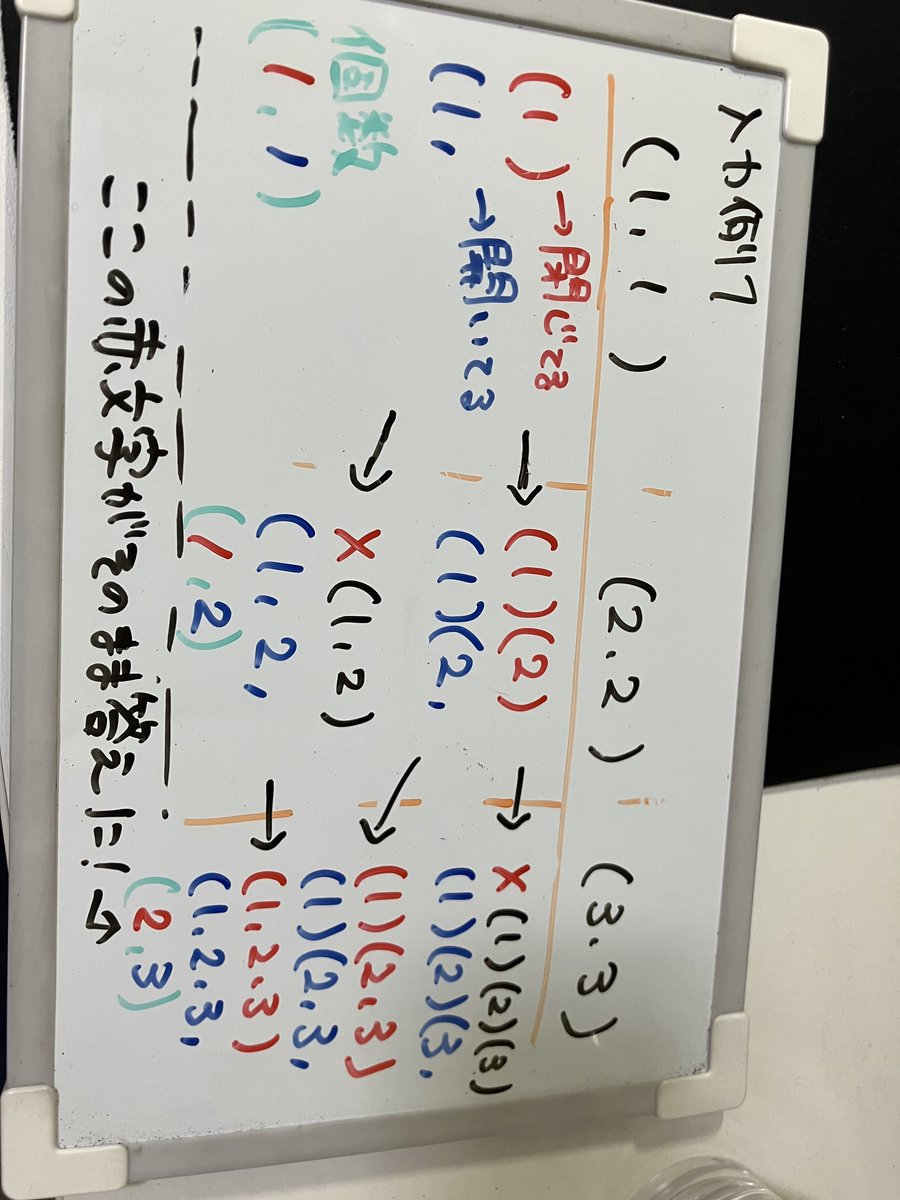 入力例1
(1, 1) (2, 2) (3, 3)
(1) →閉じてる
(1, →開いてる
個数
(1, 1)
→ (1)(2)
(1)(2,
→ ×(1, 2)
(1, 2,
(1, 2)
→ ×(1)(2)(3)
(1)(2)(3,
→ (1)(2, 3)
(1)(2, 3,
→ (1, 2, 3)
(1, 2, 3,
(2, 3)
ここの赤文字がそのまま答えに!→